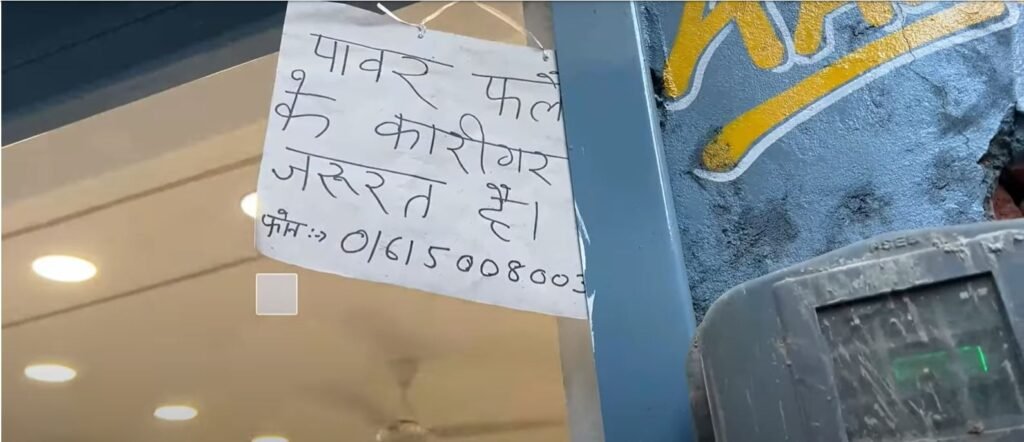 पावर फलै
के कारीगर
जरूरत है।
फोन:-> 01615008003